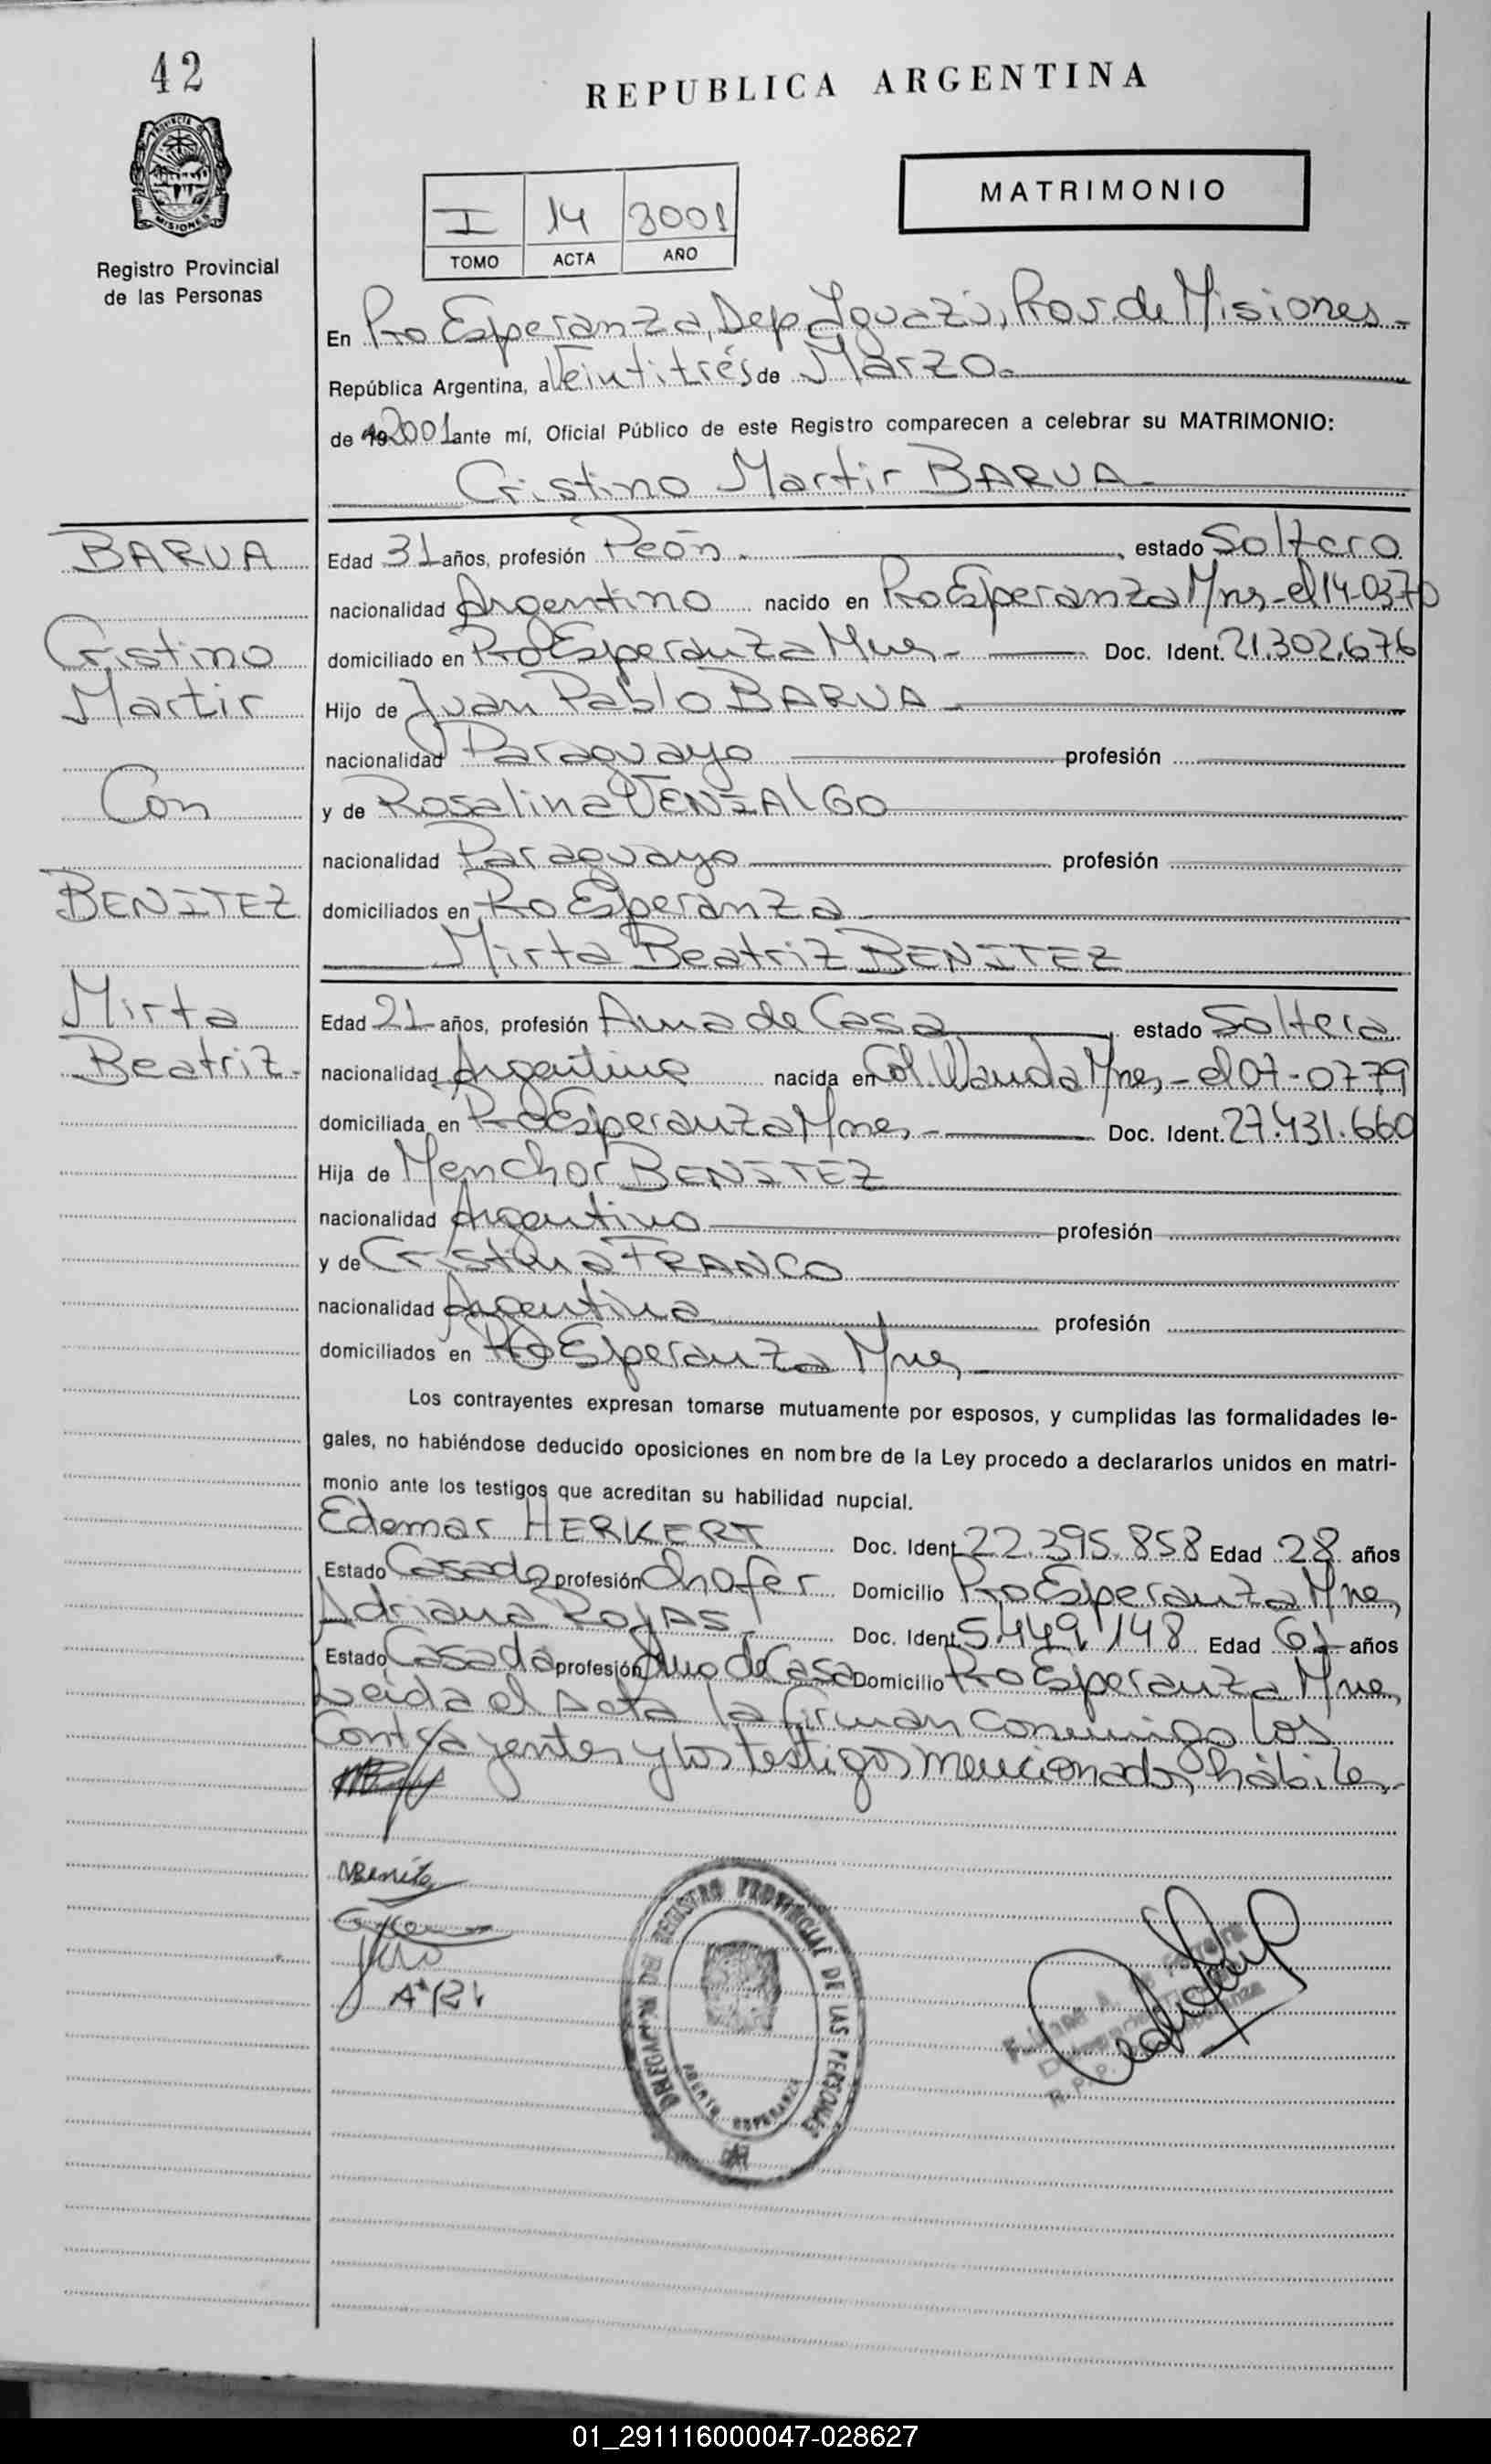 42
REPUBLICA ARGENTINA
PROVINCIA DE MISIONES
Registro Provincial
de las Personas
MATRIMONIO
I 14 2001
TOMO ACTA AÑO
En Pto Esperanza, Dep Iguazú, Prov. de Misiones
República Argentina, a Veintitrés de Marzo.
de 19 2001 ante mí, Oficial Público de este Registro comparecen a celebrar su MATRIMONIO:
Cristino Martir BARUA
BARUA
Cristino
Martir
Con
BENITEZ
Mirta
Beatriz
Edad 31 años, profesión Peón. , estado Soltero
nacionalidad Argentino nacido en Pto Esperanza Mnes - el 14-03-70
domiciliado en Pto Esperanza Mnes - Doc. Ident. 21.302.676
Hijo de Juan Pablo BARUA
nacionalidad Paraguayo profesión
y de Rosalina VENIALGO
nacionalidad Paraguayo profesión
domiciliados en Pto Esperanza
Mirta Beatriz BENITEZ
Edad 21 años, profesión Ama de Casa , estado Soltera
nacionalidad Argentina nacida en Col. Wanda Mnes - el 07-07-79
domiciliada en Pto Esperanza Mnes - Doc. Ident. 27.431.660
Hija de Menchor BENITEZ
nacionalidad Argentino profesión
y de Cristina FRANCO
nacionalidad Argentina profesión
domiciliados en Pto Esperanza Mnes
Los contrayentes expresan tomarse mutuamente por esposos, y cumplidas las formalidades le-
gales, no habiéndose deducido oposiciones en nombre de la Ley procedo a declararlos unidos en matri-
monio ante los testigos que acreditan su habilidad nupcial.
Edemar HERKERT Doc. Ident. 22.395.858 Edad 28 años
Estado Casado profesión Chofer Domicilio Pto Esperanza Mnes
Adriana ROJAS Doc. Ident. 5.449.148 Edad 61 años
Estado Casada profesión Ama de Casa Domicilio Pto Esperanza Mnes
Leida el Acta la firman conmigo los
Contrayentes y los testigos mencionados, hábiles
MBenítez
DIRECCION DEL REGISTRO PROVINCIAL DE LAS PERSONAS
PUERTO ESPERANZA
01_291116000047-028627